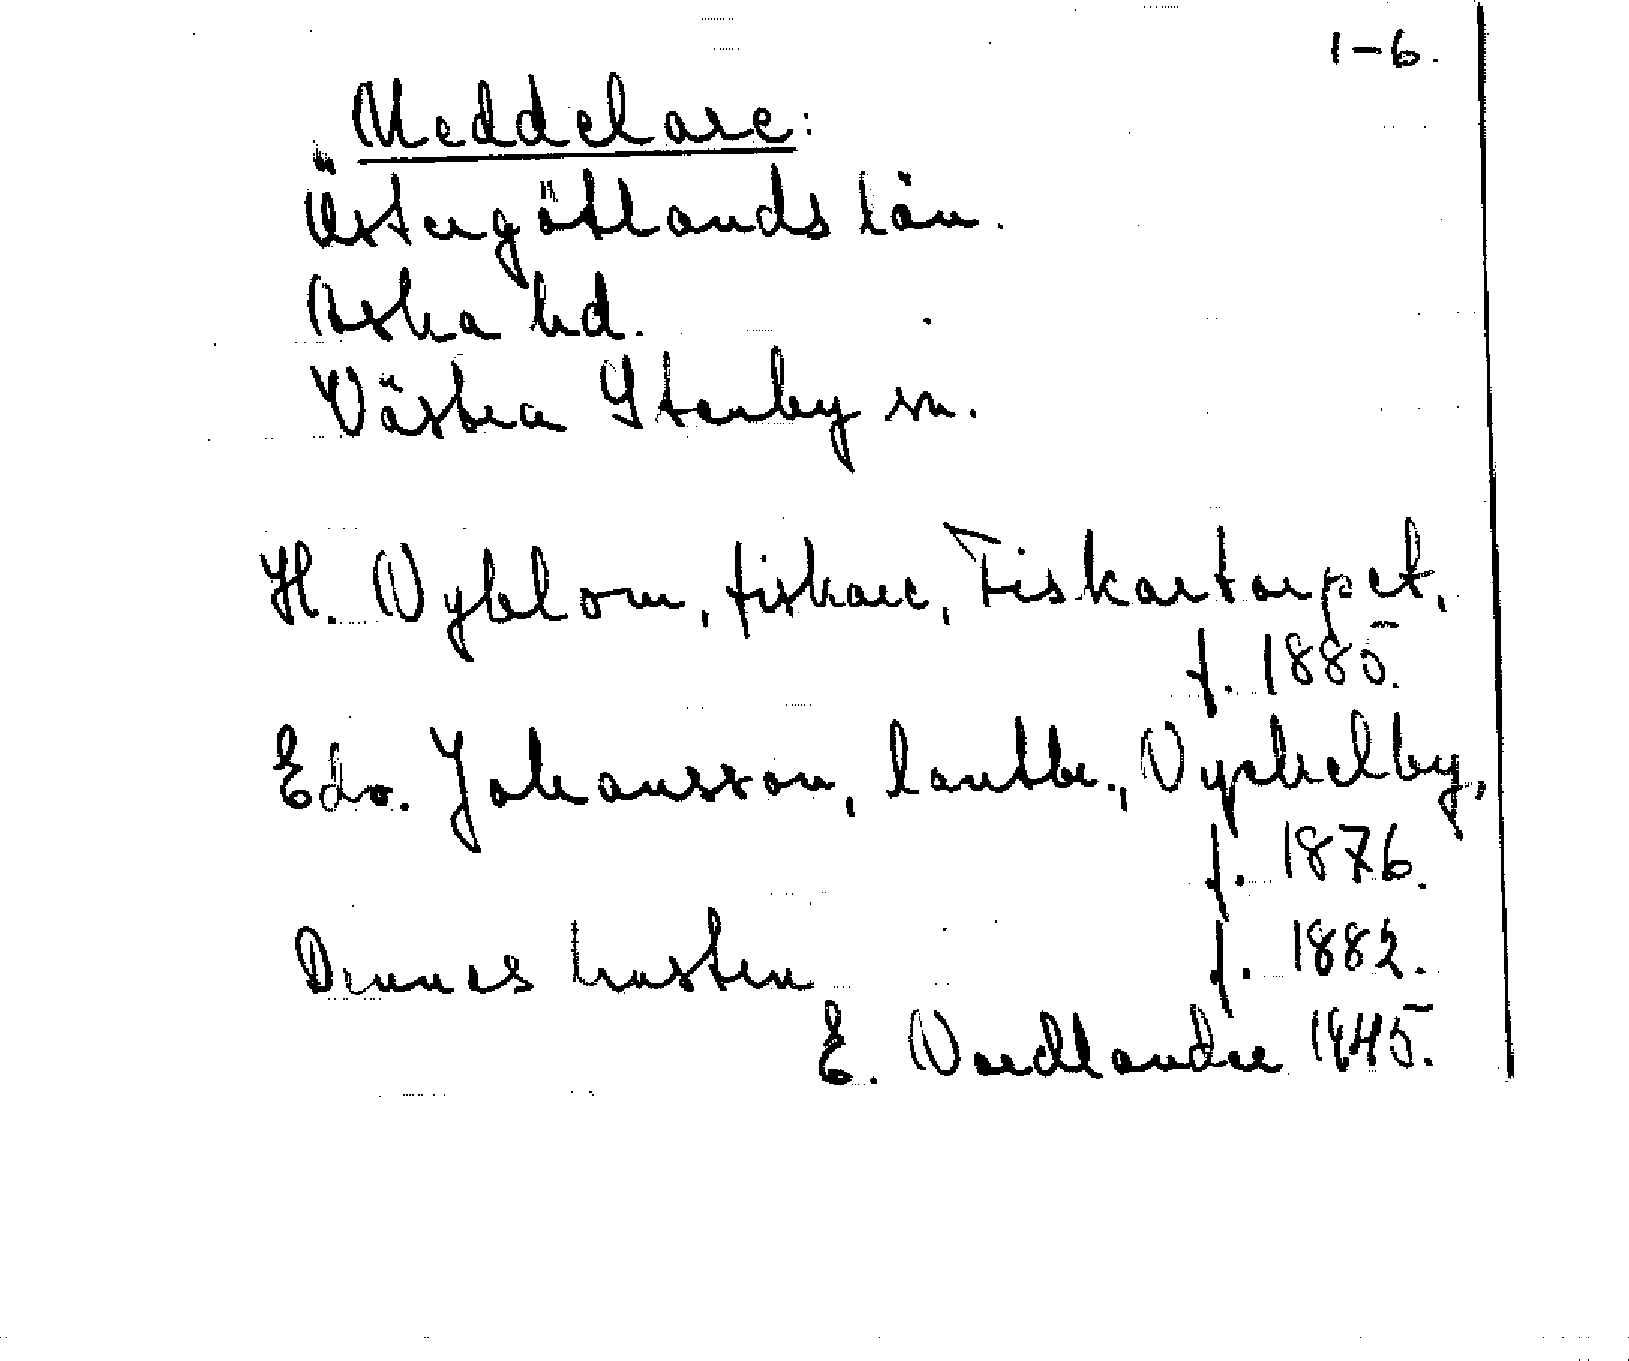 1-6.
Meddelare:
Östergötlands län.
Aska hd.
Västra Stenby sn.
H. Nyblom, fiskare, Fiskartorpet,
f. 1885.
Edv. Johansson, lantbr., Nyckelby,
f. 1876.
Dennes hustru f. 1882.
E. Nordlander 1945.